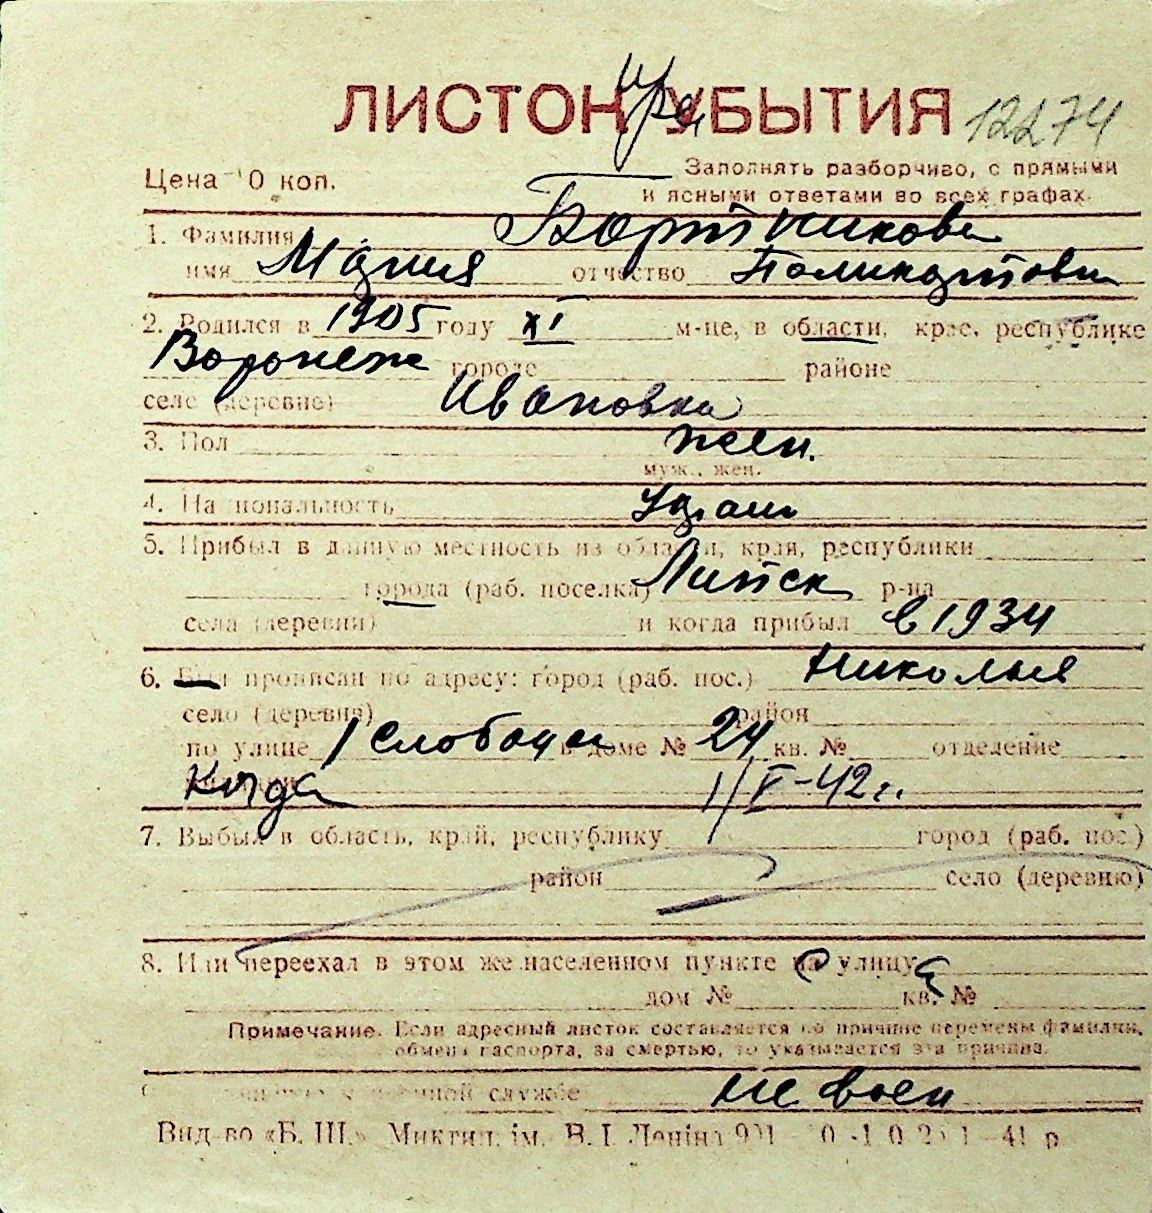 ЛИСТОК УБЫТИЯ 12274
Цена 10 коп.
Заполнять разборчиво, с прямыми
и ясными ответами во всех графах.
1. Фамилия Бортникова
имя Мария отчество Поликарповн
2. Родился в 1905 году XI м-це, в области, крае, республике
Воронеж городе районе
селе (деревне) Ивановка
3. Пол жен.
муж., жен.
4. Национальность
5. Прибыл в данную местность из области, края, республики
города (раб. поселка) Липск р-на
села (деревни) и когда прибыл в 1934
6. Был прописан по адресу: город (раб. пос.) Николаев
село (деревня) район
по улице 1 Слободы в доме № 24 кв. № отделение
Когда 1/V-42 г.
7. Выбыл в область, край, республику город (раб. пос.)
район село (деревню)
8. Или переехал в этом же населенном пункте на улицу
дом № кв. №
Примечание. Если адресный листок составляется по причине перемены фамилии,
обмена паспорта, за смертью, то указывается эта причина.
службе не воен
Вид-во «Б. Ш.» Микгип. ім. В. І. Леніна 41 р